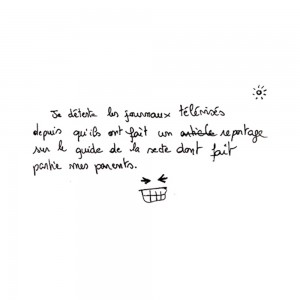 Je déteste les journaux télévisés
depuis qu'ils ont fait un article reportage
sur le guide de la secte dont fait
partie mes parents.